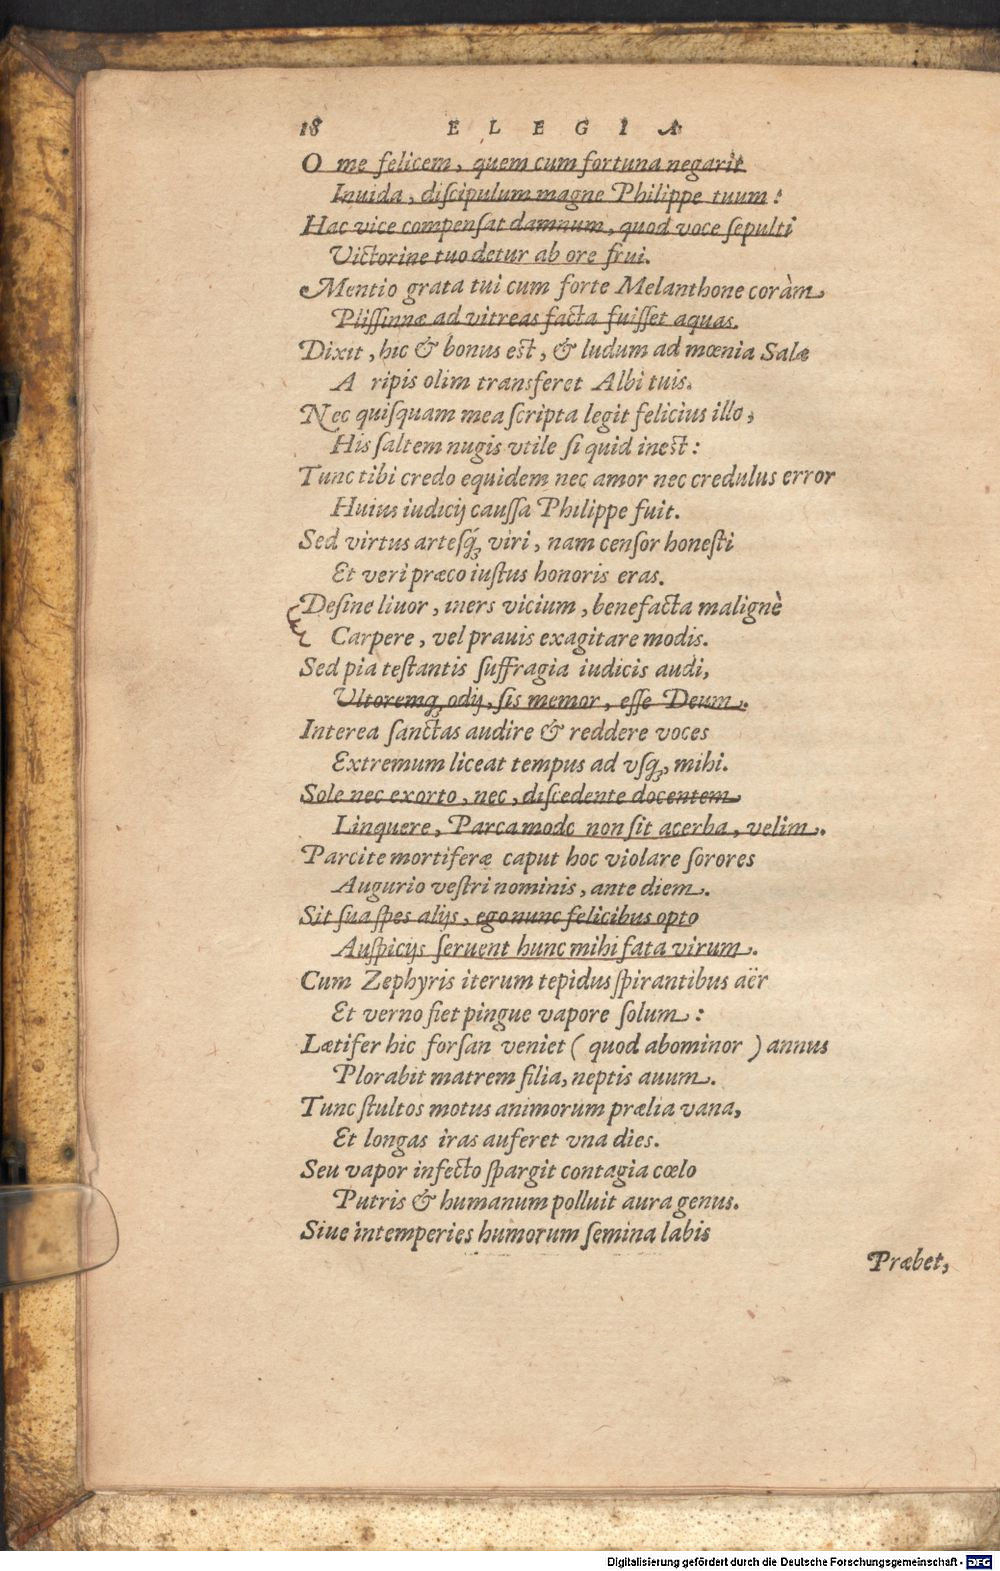 18 ELEGIA
O me felicem, quem cum fortuna negarit
Inuida, diſcipulum magne Philippe tuum:
Hac vice compenſat damnum, quod voce ſepulti
Victorine tuo detur ab ore frui.
Mentio grata tui cum forte Melanthone coràm
Pliſſinnæ ad vitreas facta fuiſſet aquas.
Dixit, hic & bonus est, & ludum ad mœnia Salæ
A ripis olim transferet Albi tuis.
Nec quiſquam mea ſcripta legit felicius illo,
His ſaltem nugis vtile ſi quid inest:
Tunc tibi credo equidem nec amor nec credulus error
Huius iudicij cauſſa Philippe fuit.
Sed virtus artesq́ꝫ viri, nam cenſor honeſti
Et veri præco iuſtus honoris eras.
Deſine liuor, iners vicium, benefacta malignè
Carpere, vel prauis exagitare modis.
Sed pia teſtantis ſuffragia iudicis audi,
Vltoremqꝫ odij, ſis memor, eſſe Deum.
Interea ſanctas audire & reddere voces
Extremum liceat tempus ad vſqꝫ, mihi.
Sole nec exorto, nec, diſcedente docentem
Linquere, Parca modo non ſit acerba, velim.
Parcite mortiferæ caput hoc violare ſorores
Augurio veſtri nominis, ante diem.
Sit ſua ſpes alijs, ego nunc felicibus opto
Auſpicijs ſeruent hunc mihi fata virum.
Cum Zephyris iterum tepidus ſpirantibus aër
Et verno fiet pingue vapore ſolum:
Lætifer hic forſan veniet (quod abominor) annus
Plorabit matrem filia, neptis auum.
Tunc ſtultos motus animorum prælia vana,
Et longas iras auferet vna dies.
Seu vapor infecto ſpargit contagia cœlo
Putris & humanum polluit aura genus.
Siue intemperies humorum ſemina labis
Præbet,
Digitalisierung gefördert durch die Deutsche Forschungsgemeinschaft - DFG